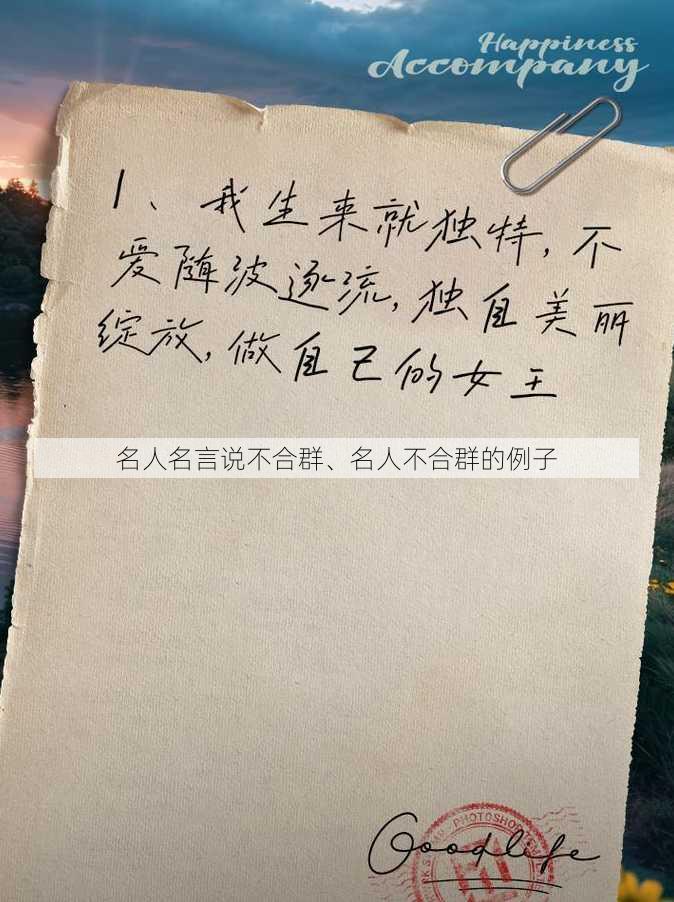 Happiness
Accompany
1、我生来就独特,不
爱随波逐流,独自美丽
绽放,做自己的女王
名人名言说不合群、名人不合群的例子
PHOTOSHOP
Good life